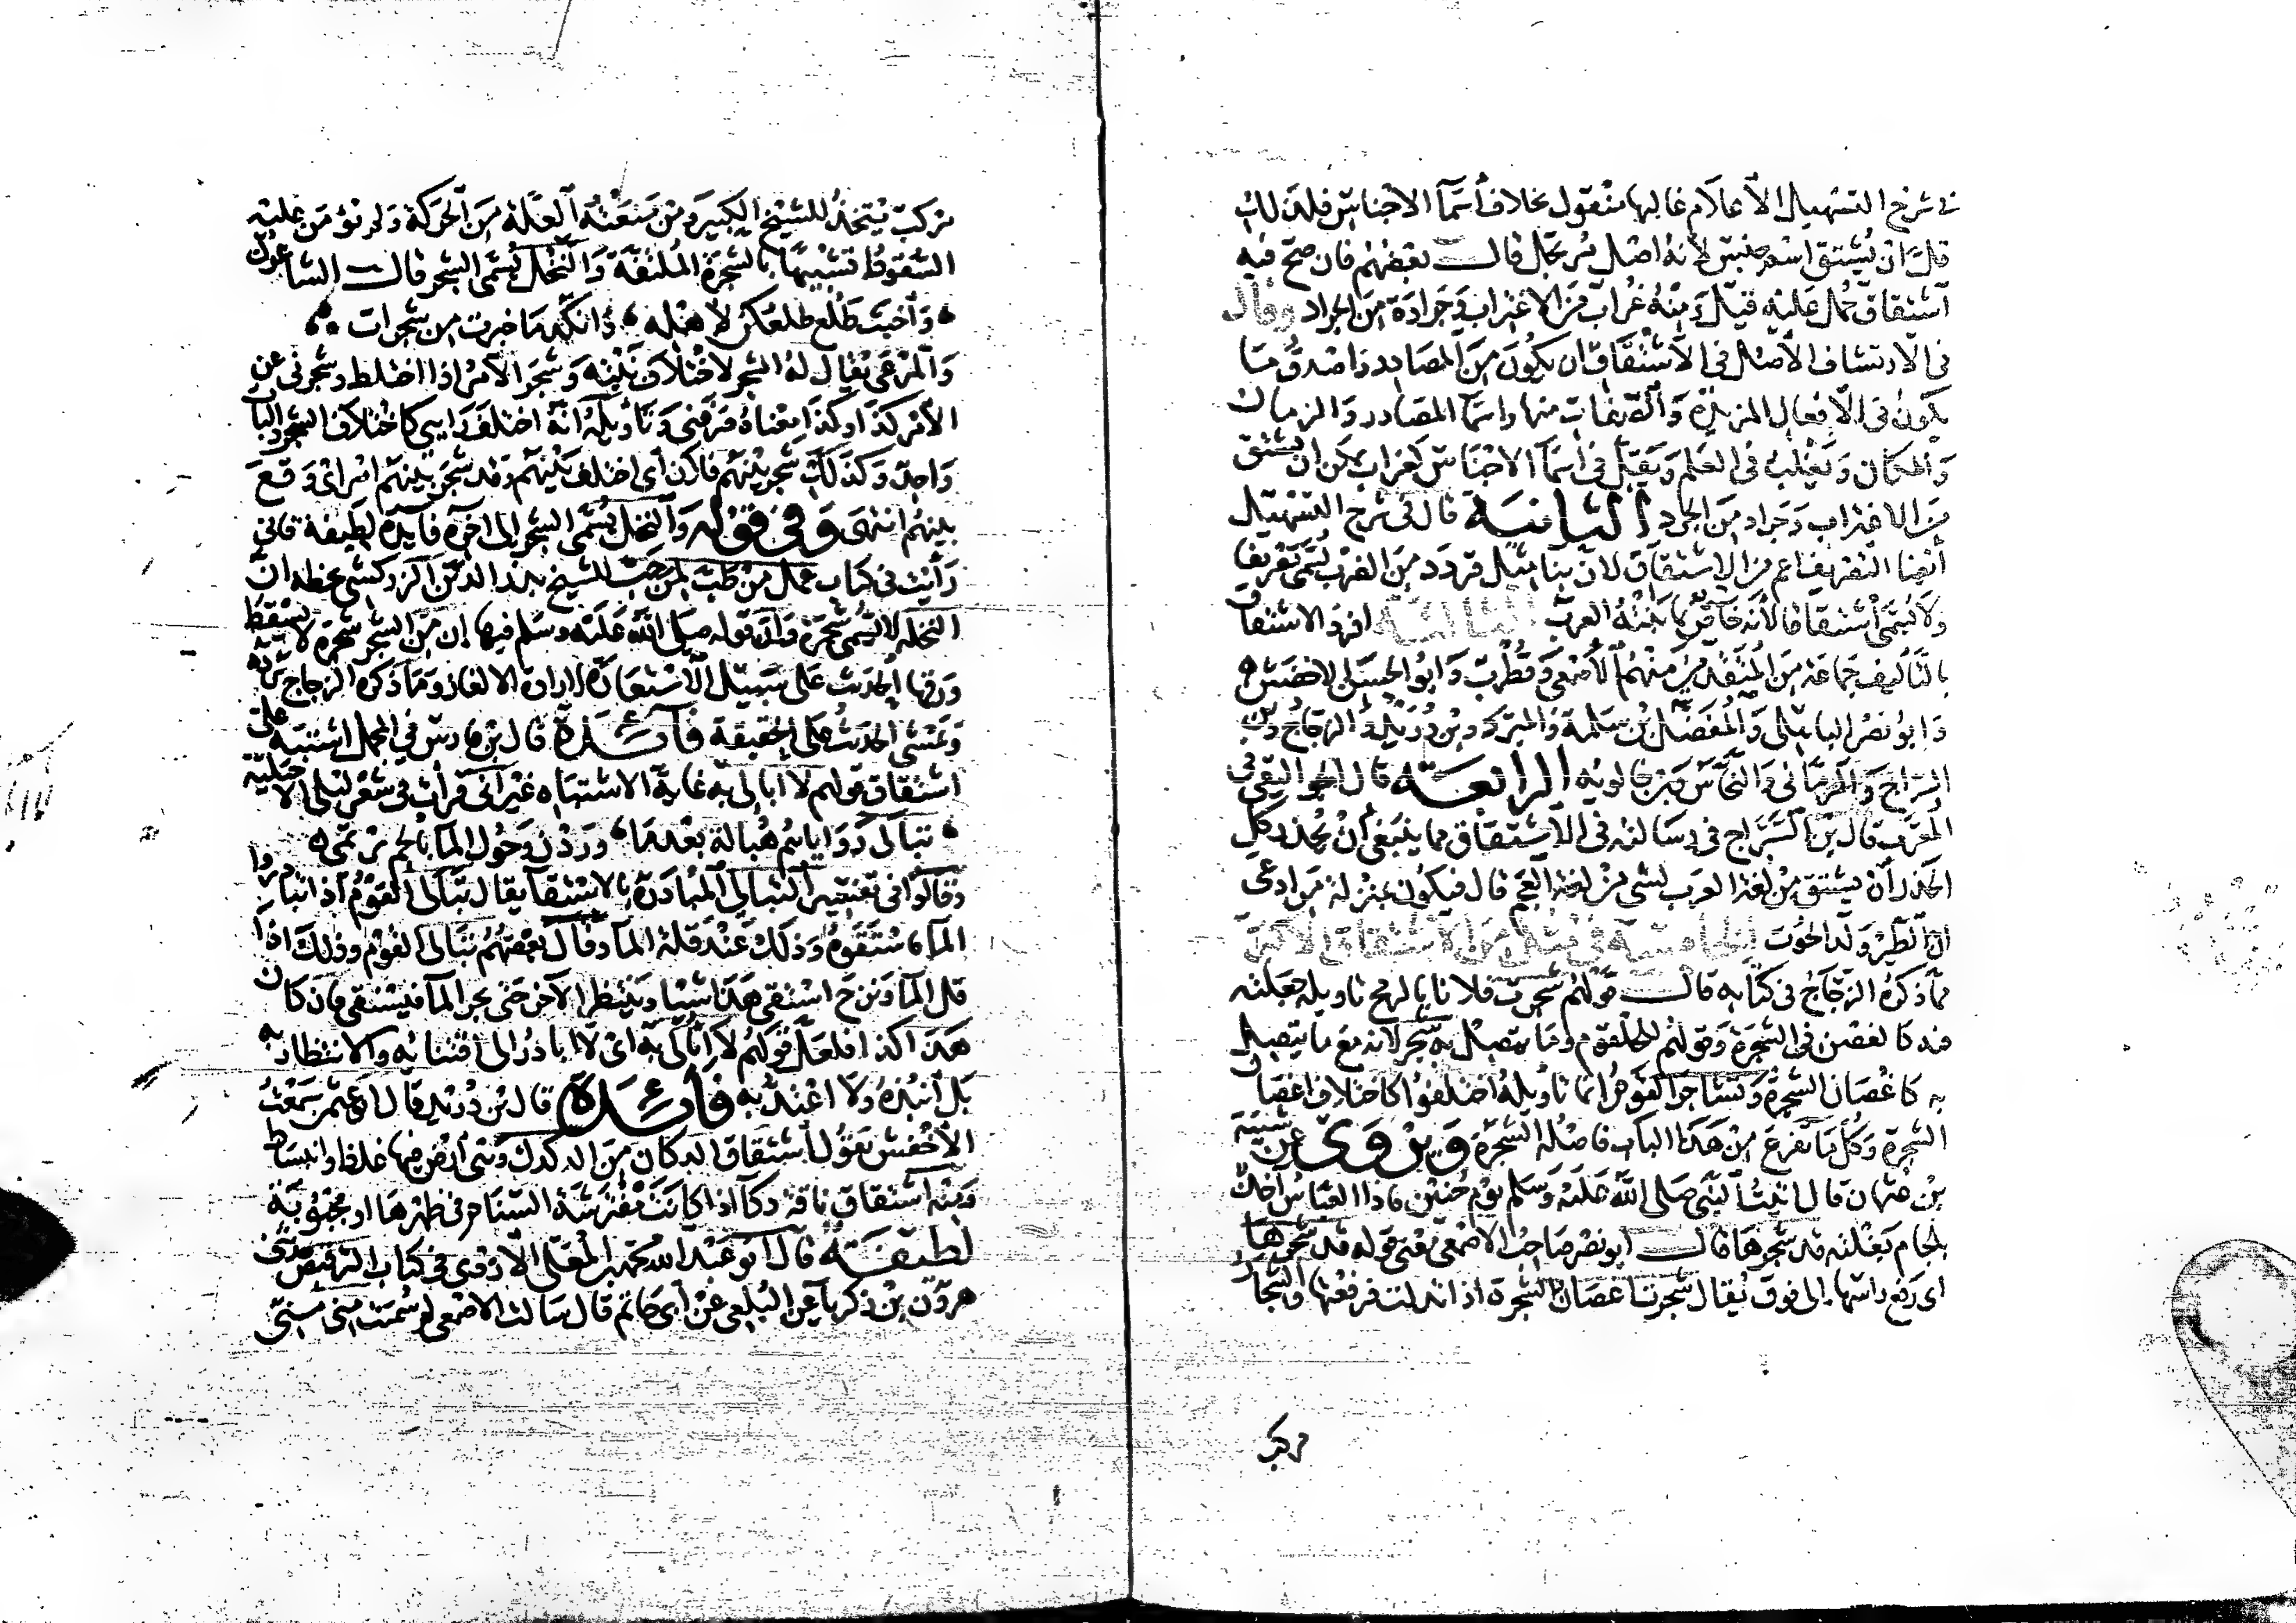 في شرح التسهيل الأعلام غالبها منقول بخلاف أسماء الاجناس فلذلك
قل ان يشتق اسم جنس لأنه اصل مرتجل قال بعضهم فان صح فيه
اشتقاق حمل عليه قيل ومنه غراب من الاغتراب وجرادة من الجراد وقال
فى الارتشاف الأصل فى الاشتقاق ان يكون من المصادر واصدق ما
يكون فى الافعال المزيدة والصفات منها واسما المصادر والزمان
والمكان ويغلب فى العلم ويقل فى اسما الاجناس كغراب يمكن ان يشتق
من الاغتراب وجراد من الجرد الثانية قال فى شرح التسهيل
أيضا التصريف اعم من الاشتقاق لان بنا مثل قردد من الضرب يسمى تصريفا
ولا يسمى اشتقاقا لأنه خاص بما بنته العرب الثالثة افرد الاشتقاق
بالتأليف جماعة من المتقدمين منهم الأصمعي وقطرب وابو الحسن الاخفش
وابو نصر الباهلى والمفضل بن سلمة والمبرد وبن دريد والزجاج وبن
السراج والرمانى والنحاس وبن خالويه الرابعة قال الجواليقى في
المعرب قال بن السراج فى رسالته فى الاشتقاق مما ينبغى أن يحذر كل
الحذر أن يشتق من لغة العرب لشى من لغة العجم قال فيكون بمنزلة من ادعى
ان الطير ولد الحوت الخامسة فى مثال من الاشتقاق الاكبر
مما ذكره الزجاج فى كتابه قال قولهم شجرت فلانا بالرمح تاويله جعلته
فيه كالغصن فى الشجرة وقولهم للحلقوم وما يتصل به شجر لانه مع ما يتصل
به كاغصان الشجرة وتشاجر القوم انما تاويله اختلفوا كاختلاف اغصان
الشجرة وكل ما تفرع من هذا الباب فاصله الشجرة ويروى عن شيبة
بن عثمان قال اتيت النبى صلى الله عليه وسلم يوم حنين فاذا العباس آخذ
بلجام بغلته قد شجرها قال ابو نصر صاحب الاصمعى يعنى قوله قد شجرها
اى رفع راسها الى فوق يقال شجرت اغصان الشجرة اذا تدلت فرفعتها والشجار
مركب
مركب يتخذ للشيخ الكبير ومن منعته العلة من الحركة ولم نؤمن عليه
السقوط تشبيها بالشجرة الملتفة والنخل يسمى الشجر قال الشاعر
واخبث طلع طلعكن لأهله وانكد ما خبرت من شجرات
والمرعى يقال له الشجر لاختلاف نبته وشجر الأمر اذا اختلط وشجرنى عن
الأمر كذا وكذا معناه صرفنى وتاويله انه اختلف رايى كاختلاف الشجر والباب
واحد وكذلك شجر بينهم فلان اى اختلف بينهم وقد شجر بينهم امر اى وقع
بينهم انتهى وفى قوله والنخل يسمى الشجر الى اخره فايدة لطيفة فانى
رأيت فى كتاب عمل من طب لمن حب للشيخ بدر الدين الزركشى بخطه ان
النخلة لا تسمى شجرة وان قوله صلى الله عليه وسلم فيها إن من الشجر شجرة لا يسقط
ورقها الحديث على سبيل الاستعارة لارادة الالغاز وما ذكره الزجاج يرده
ويمشى الحديث على الحقيقة فائدة قال بن فارس فى المجمل اشتبه على
اشتقاق قولهم لا ابالى به غاية الاشتباه غير أنى قرأت فى شعر ليلى الاخيلية
تبالى رواياهم هبالة بعدما وردن وحول الما بالجم يرتمى
وقالوا فى تفسير التبالى المبادرة بالاستقا يقال تبالى القوم اذا تبادروا
الما فاستقوه وذلك عند قلة الما وقال بعضهم تبالى القوم وذلك اذا
قل الما ونزح استقى هذا شيا وينتظر الآخر حتى يجم الما فيستقى فان كان
هذا كذا فلعل قولهم لا ابالى به اى لا ابادر الى اقتنائه والانتظار به
بل أنبذه ولا اعتد به فائدة قال بن دريد قال ابو عثمن سمعت
الأخفش يقول اشتقاق الدكان من الدكدك وهى أرض فيها غلظ وانبساط
ومنه اشتقاق ناقة دكآ اذا كانت مفترشة السنام فى ظهرها او مجبوبة
لطيفة قال ابو عبد الله محمد بن المعلى الأزدى فى كتاب الترقيص حدثنى
هرون بن زكريا عن البلعى عن أبى حاتم قال سالت الاصمعى لم سميت منى منى